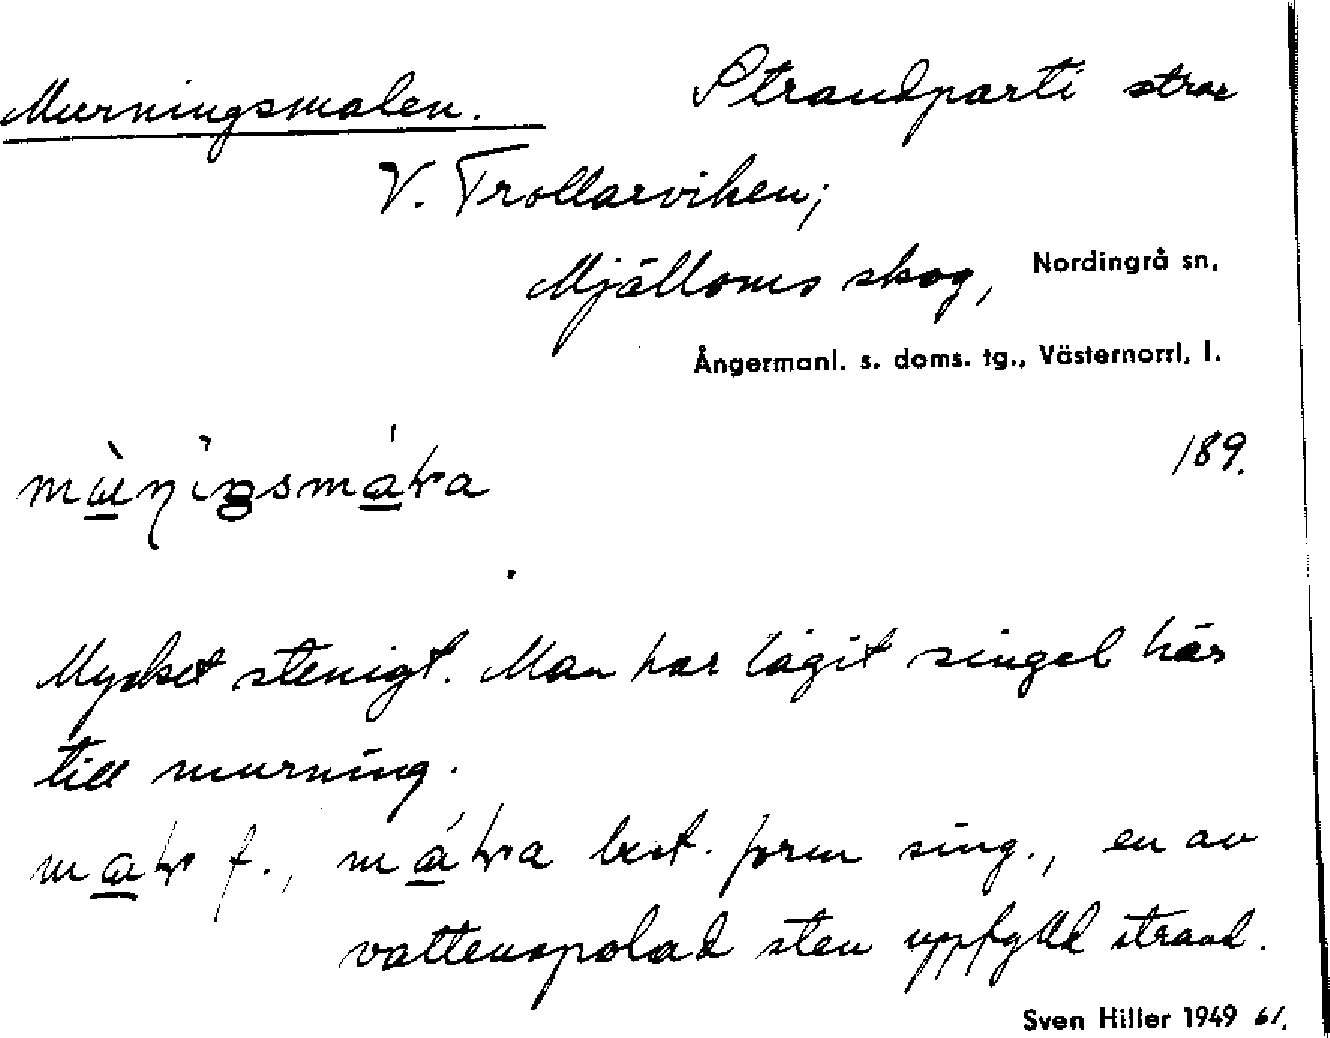 Murningsmalen. Strandparti strax
V. Trollarviken;
Mjälloms skog, Nordingrå sn,
Ångermanl. s. doms. tg., Västernorrl. l.
189.
Mycket stenigt. Man har tagit singel här
till murning.
f., best. form sing., en av
vattenspolad sten uppfylld strand.
Sven Hiller 1949 61.